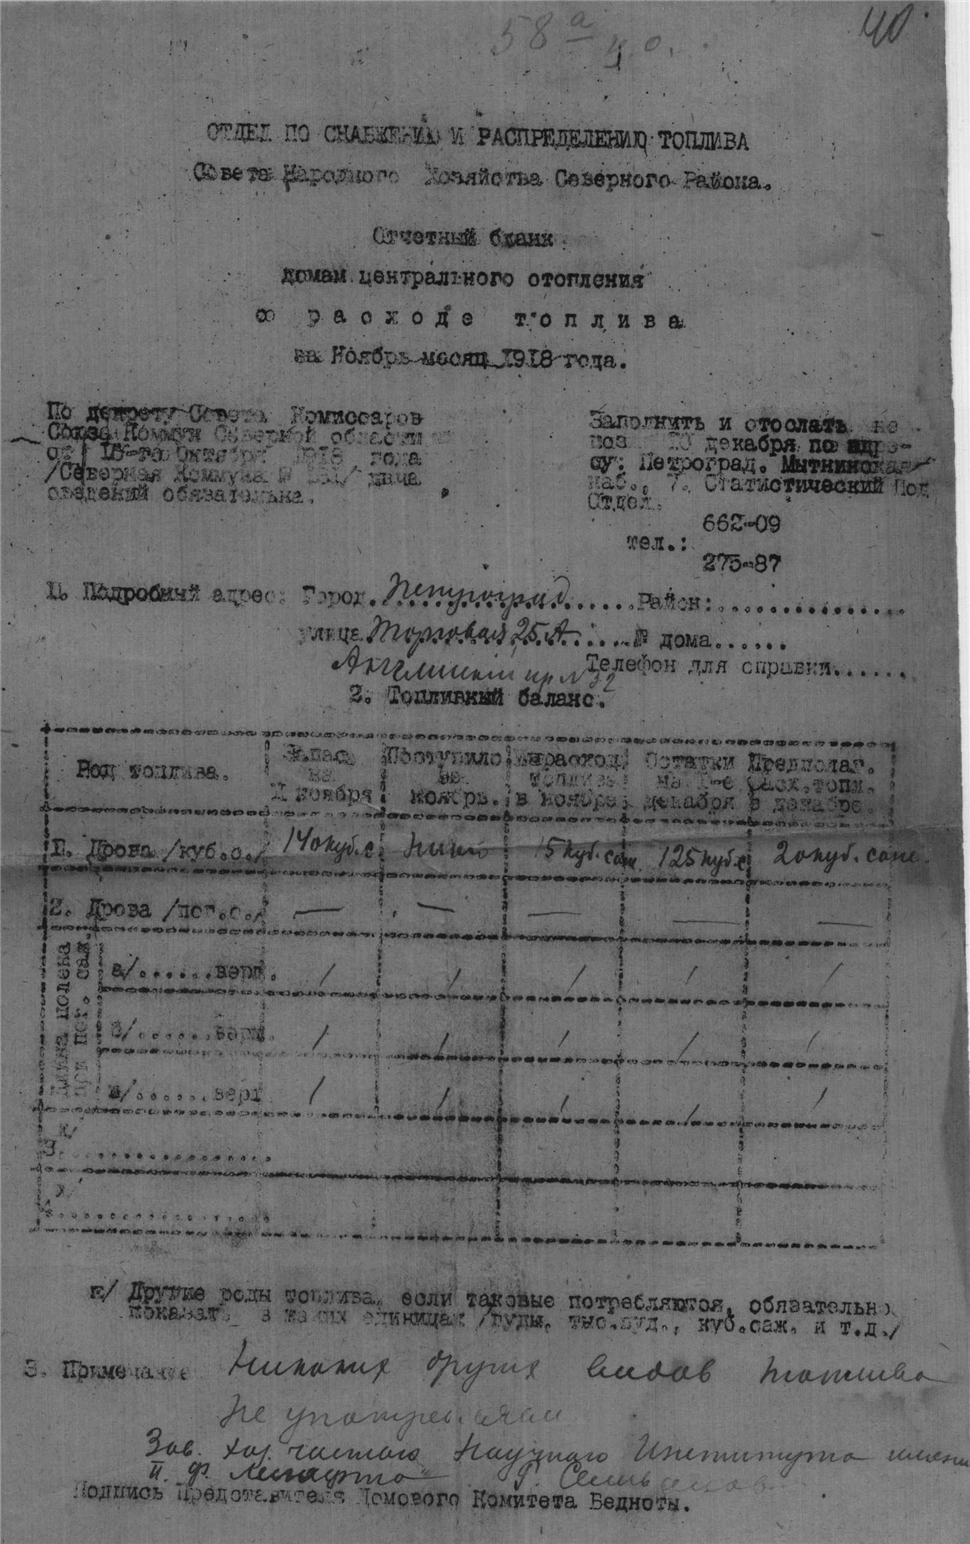 58 а
40
ОТДЕЛ ПО СНАБЖЕНИЮ И РАСПРЕДЕЛЕНИЮ ТОПЛИВА
Совета Народного Хозяйства Северного Района.
Отчетный бланк
домам центрального отопления
о расходе топлива
за Ноябрь месяц 1918 года.
По декрету Совета Комиссаров
Союза Коммун Северной области
от 15-го Октября 1918 года
/Северная Коммуна № / дача
сведений обязательна.
Заполнить и отослать не
позд 10 декабря по адре-
су: Петроград. Мытнинская
наб., 7. Статистический Под
Отдел.
662-09
тел.:
275-87
1. Подробный адрес: Город. Петроград ......Район:................
улица Торговая 25 А ......№ дома......
Английский пр. № 32 Телефон для справки......
2. Топливный баланс.
Род топлива. Запас на 1 ноября Поступило в ноябрь. Израсход. топлива в ноябре Остатки на 1-е декабря Предполаг. расх. топл. в декабре.
1. Дрова /куб.с./ 140 куб. с. 15 куб. саж. 125 куб. с. 20 куб. саж.
2. Дрова /пог.с./ — — — — —
Длина полена при пог. саж.
а/......верш. / / / / /
б/......верш. / / / / /
в/......верш / / / / /
3.х/..................
4.х/..................
х/ Другие роды топлива, если таковые потребляются, обязательно
показать в каких единицах /пуды, тыс.пуд., куб.саж. и т.д./
3. Примечание Никаких других видов топлива
не употребляем
Зав. хоз. частью Научного Института имени
П. Ф. Лесгафта
Подпись Представителя Домового Комитета Бедноты.